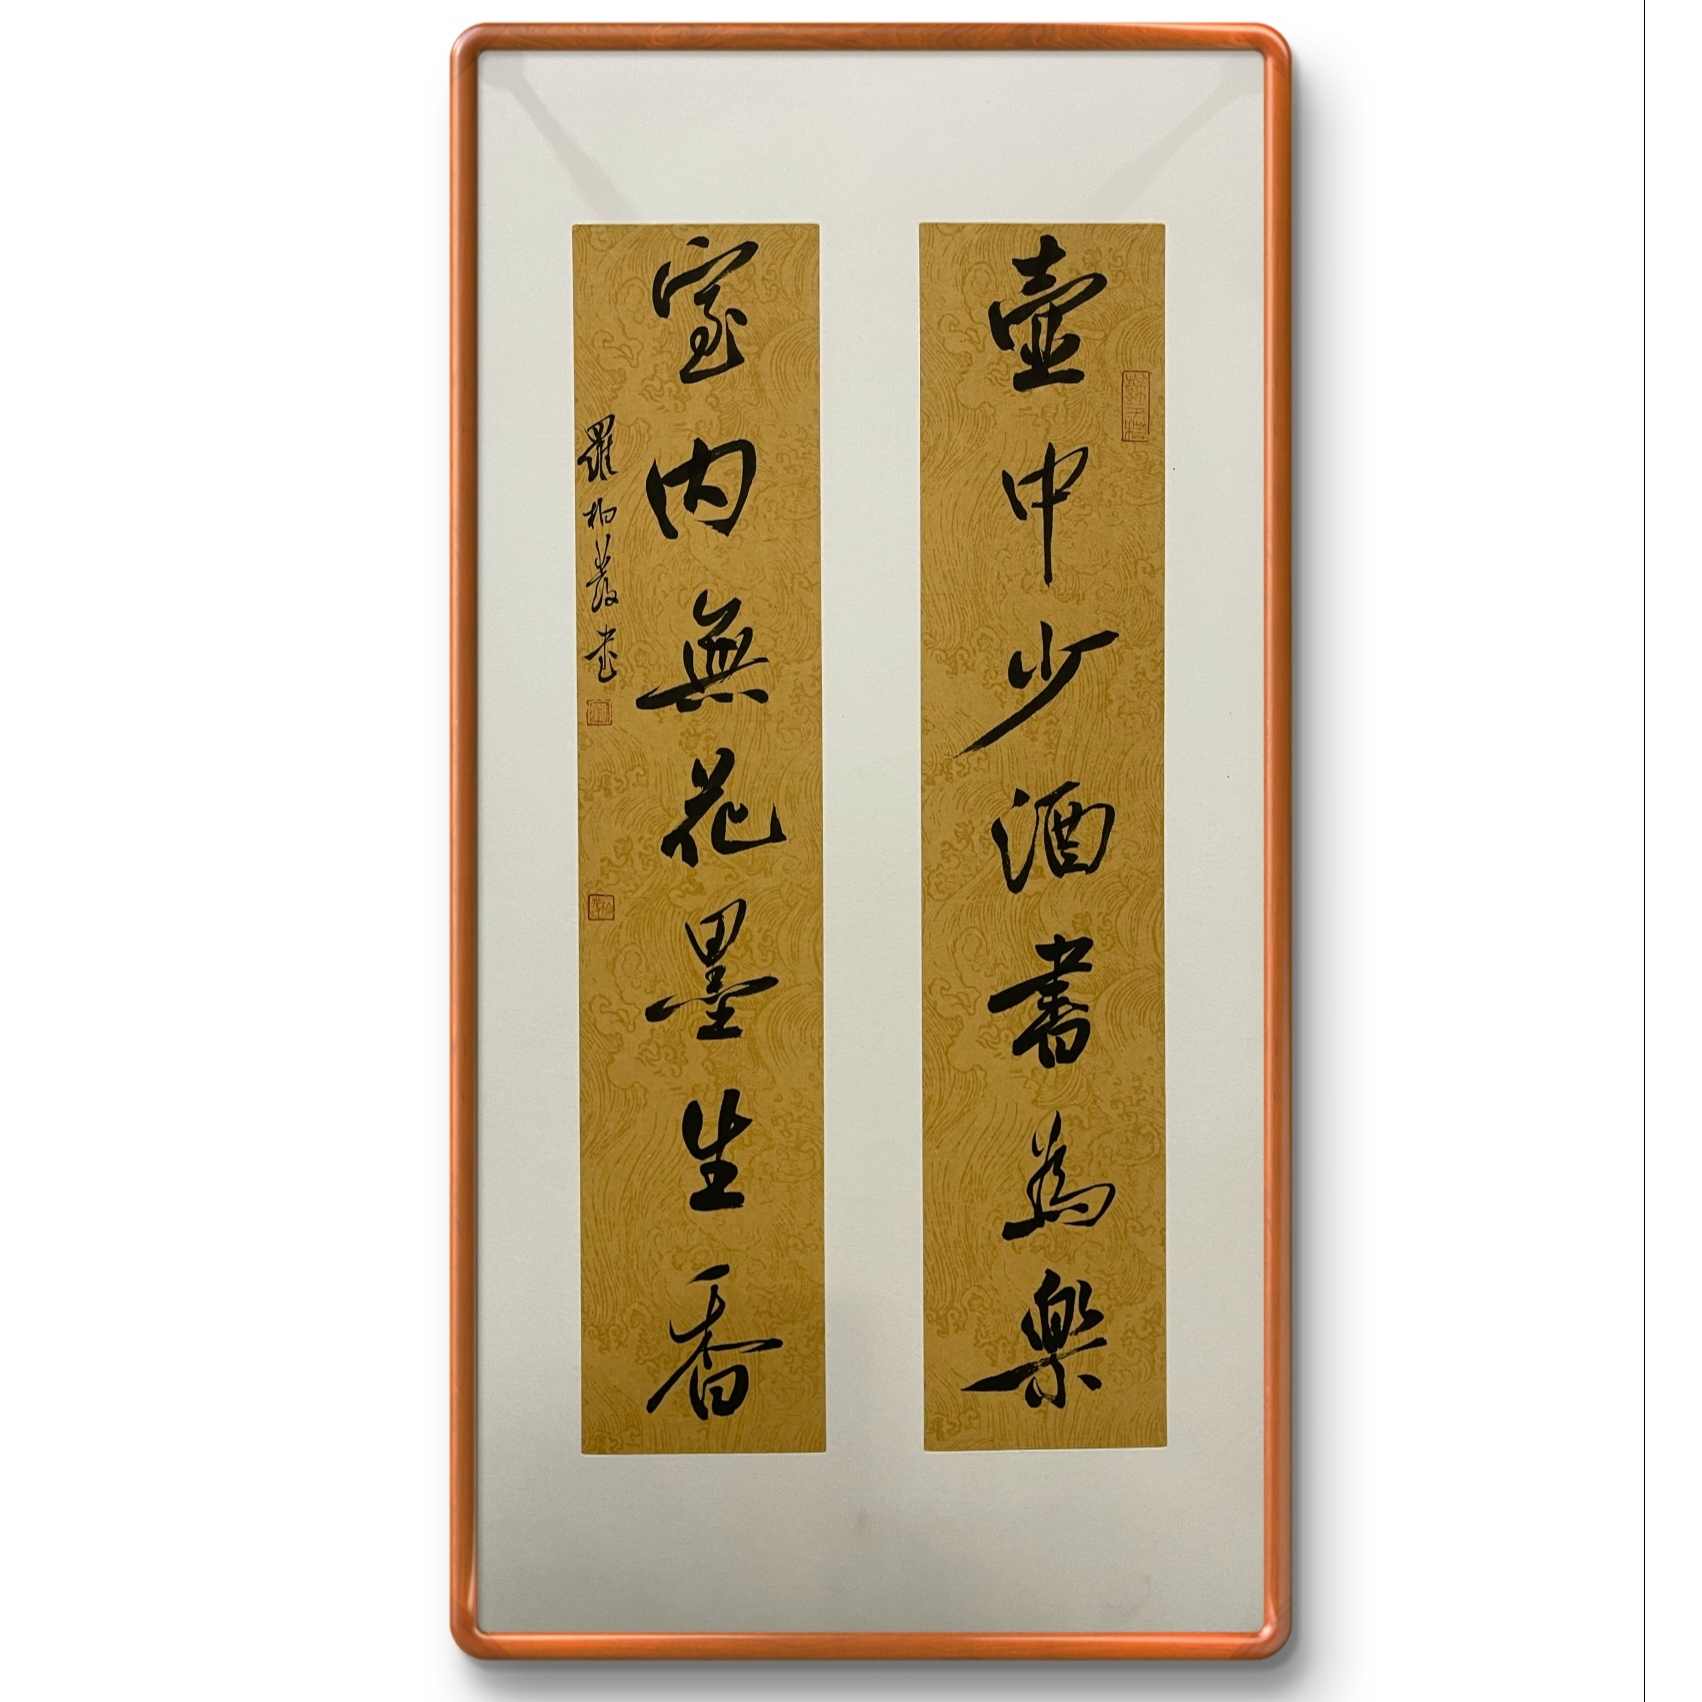 壺中少酒書為樂
室内無花墨生香
羅柏
書